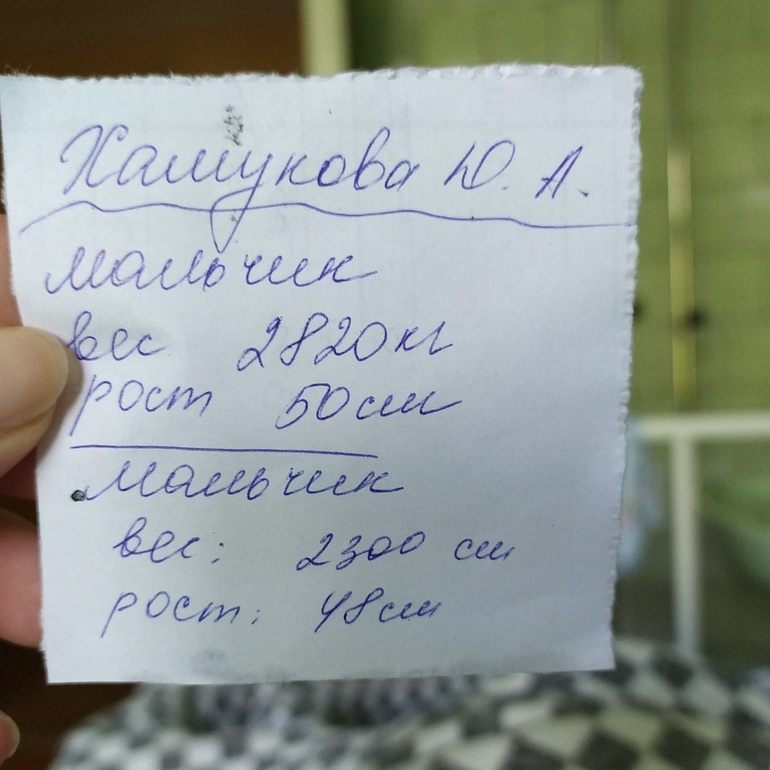 Хамукова Ю. А.
мальчик
вес 2820кг
рост 50см
мальчик
вес: 2300 см
рост: 48см